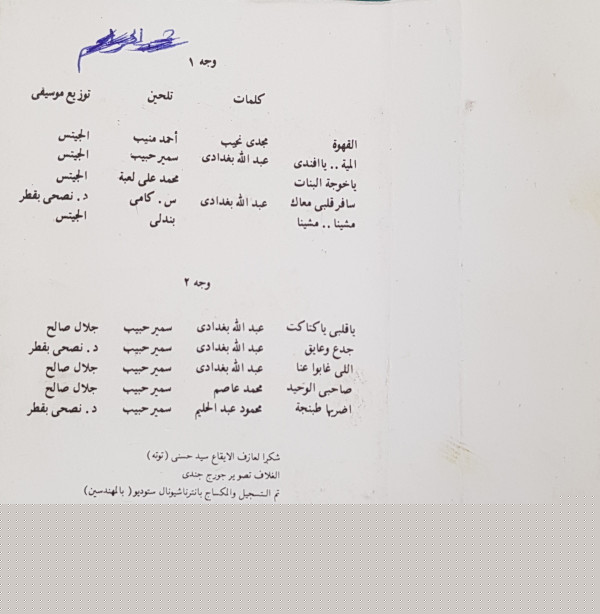 وجه ١
كلمات تلحين توزيع موسيقى
القهوة مجدى نجيب أحمد منيب الجيتس
المية .. ياافندى عبد الله بغدادى سمير حبيب الجيتس
ياخوجة البنات محمد على لعبة الجيتس
سافر قلبى معاك عبد الله بغدادى س . كامى د . نصحى بقطر
مشينا .. مشينا بندلى الجيتس
وجه ٢
ياقلبى ياكتاكت عبد الله بغدادى سمير حبيب جلال صالح
جدع وعايق عبد الله بغدادى سمير حبيب د . نصحى بقطر
اللى غابوا عنا عبد الله بغدادى سمير حبيب جلال صالح
صاحبى الوحيد محمد عاصم سمير حبيب جلال صالح
اضربها طبنجة محمود عبد الحليم سمير حبيب د . نصحى بقطر
شكرا لعازف الايقاع سيد حسنى (توته)
الغلاف تصوير جورج جندى
تم التسجيل والمكساج بانترناشيونال ستوديو( بالمهندسين)